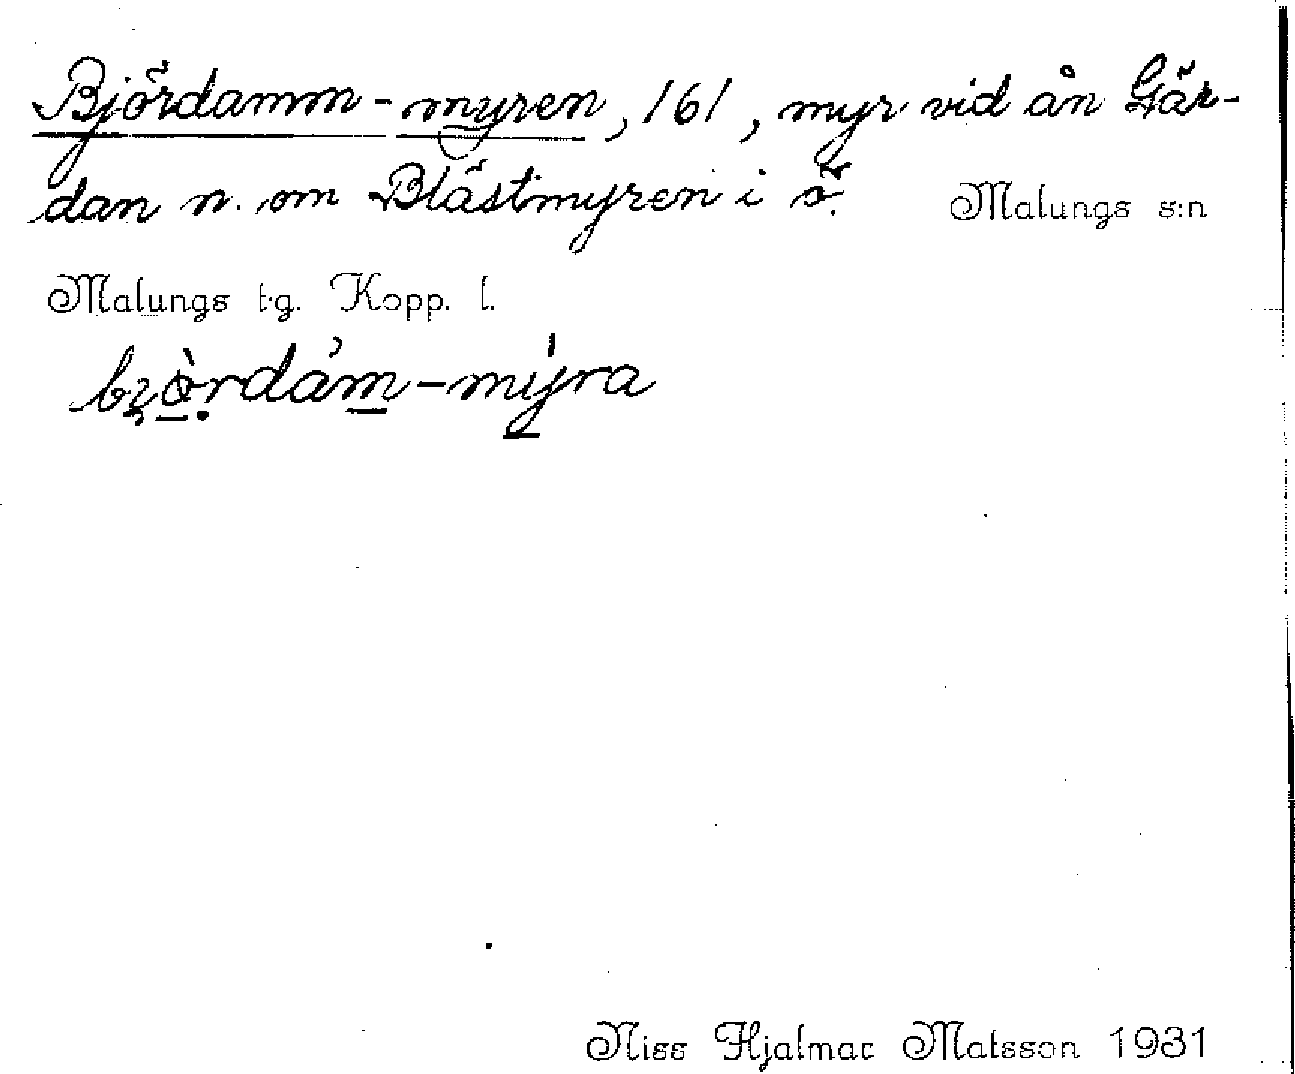 Björdamm-myren, 161, myr vid ån Gär-
dan n. om Blästmyren i ö. Malungs s:n
Malungs tg. Kopp. l.
bȷòrdám-mýra
Niss Hjalmar Matsson 1931